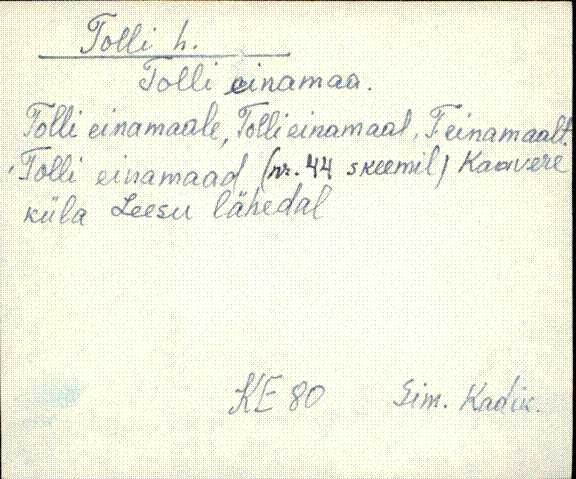 Tolli h.
Tolli einamaa.
Tolli einamaale, Tolli einamaal, T einamaalt,
Tolli einamaad (nr. 44 skeemil) Kaavere
küla Leesu lähedal
KE 80 Sim. Kadik.